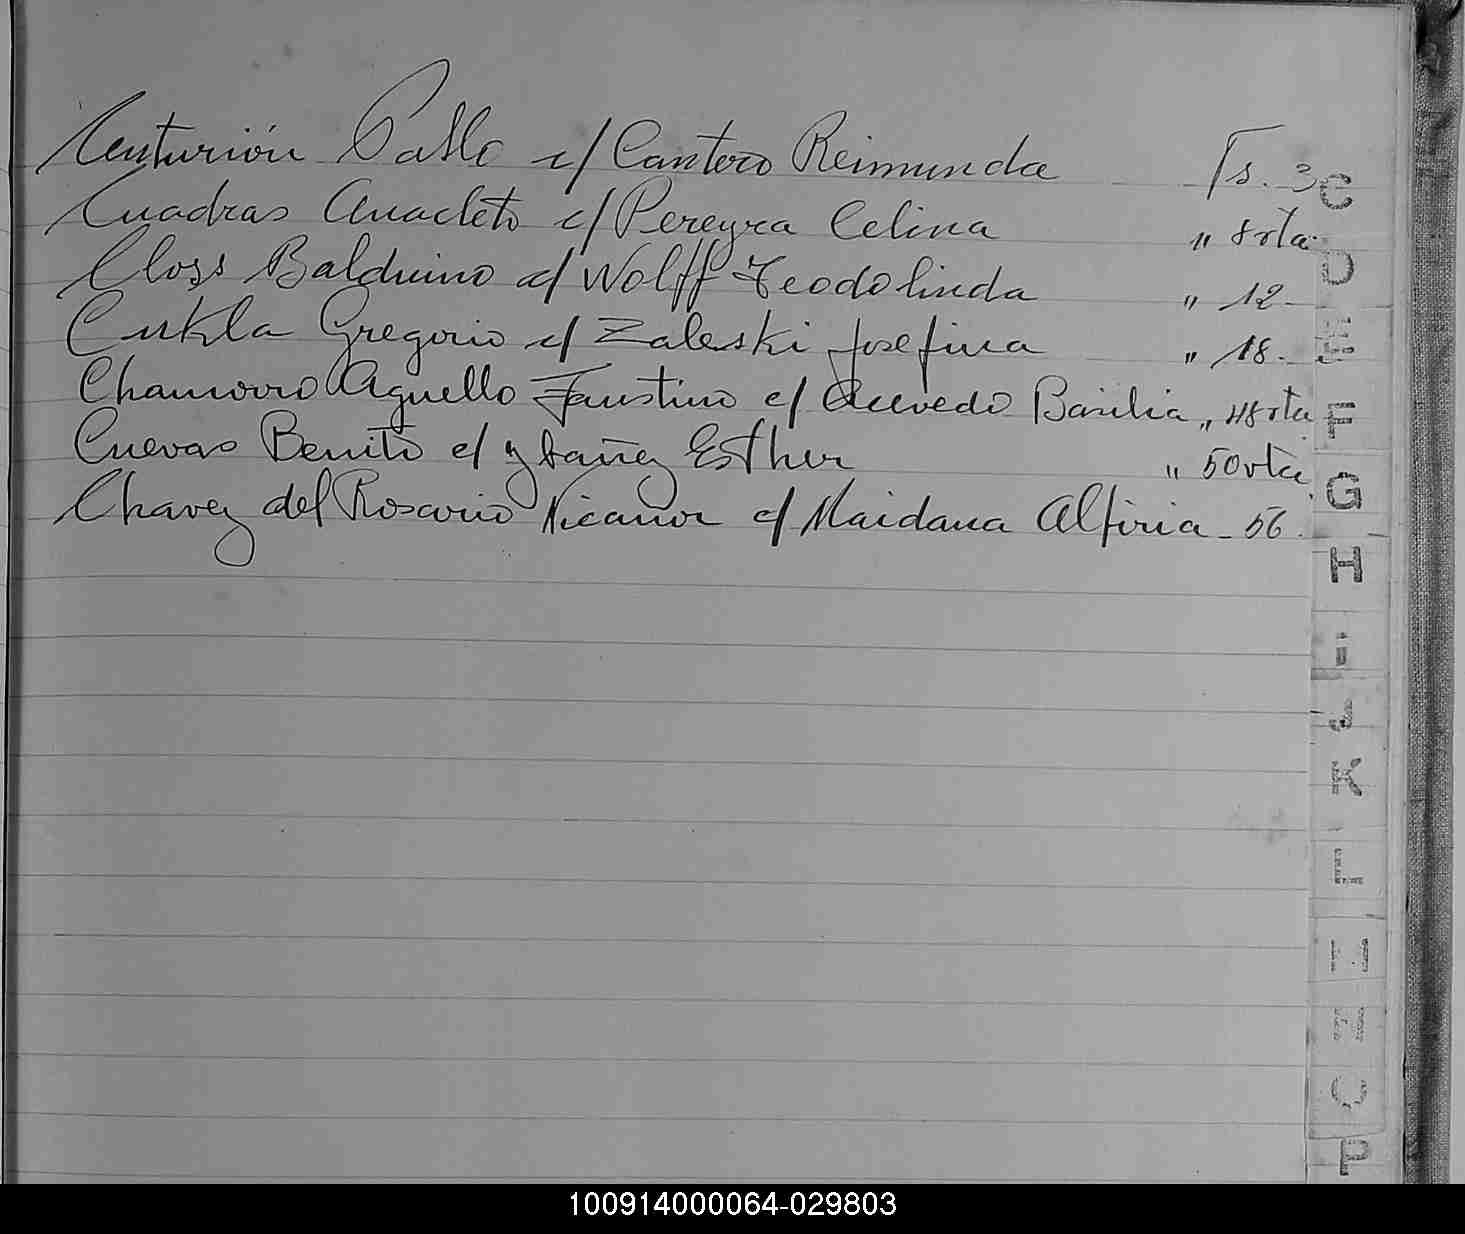 Centurión Pablo c/ Cantero Reimunda Fs. 3
Cuadras Anacleto c/ Pereyra Celina " 8 vta.
Closs Balduino c/ Wolff Teodolinda " 12
Cukla Gregorio c/ Zaleski Josefina " 18.
Chamorro Aguello Faustino c/ Acevedo Basilia " 48 vta
Cuevas Benito c/ Ybañez Esther " 50 vta
Chavez del Rosario Nicanor c/ Maidana Alfiria - 56.
C
D
E
F
G
H
i
J
K
L
M
N
O
P
100914000064-029803